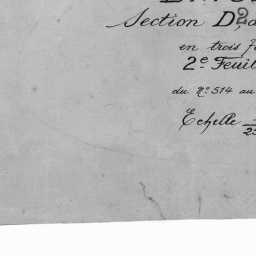 Section D,
en trois
2e Feuil
du No 514 au
Echelle